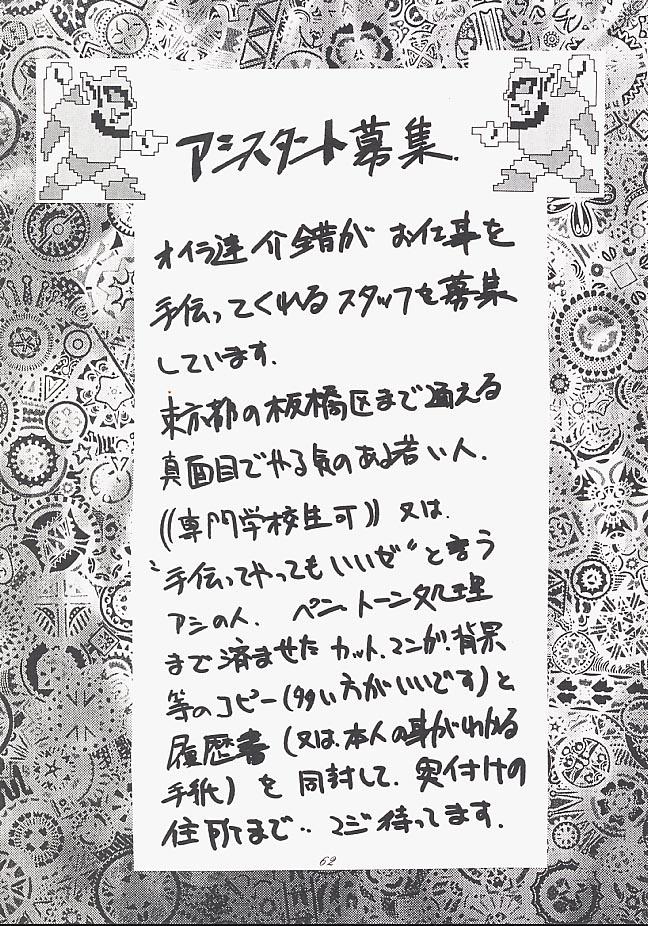 アシスタント募集.
オイラ達 介錯が お仕事を
手伝ってくれる スタッフを募集
しています.
東京都の板橋区まで通える
真面目でやる気のある若い人.
((専門学校生可)) 又は.
〝手伝ってやってもいいぜ〟と言う
アシの人. ペン、トーン処理
まで済ませた カット、マンガ、背景
等のコピー(多い方がいいです)と
履歴書(又は、本人の事がわかる
手紙)を 同封して、奥付けの
住所まで‥ マジ待ってます.
62